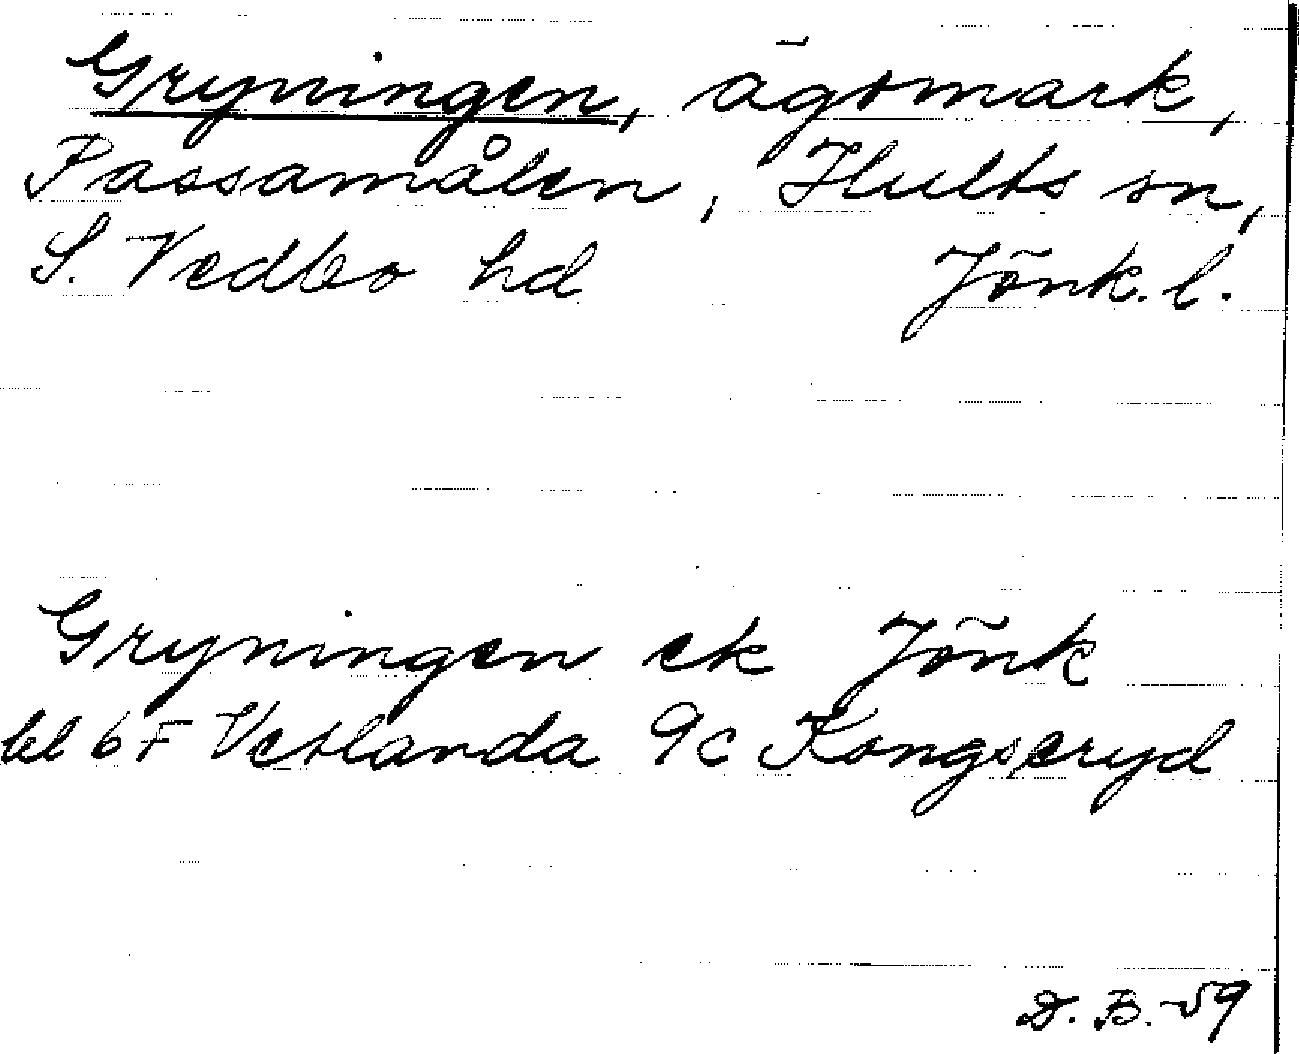 Gryningen, ägomark,
Passamålen, Hults sn,
S. Vedbo hd Jönk. l.
Gryningen ek Jönk
bl 6 F Vetlanda 9c Kongseryd
D. B. -59